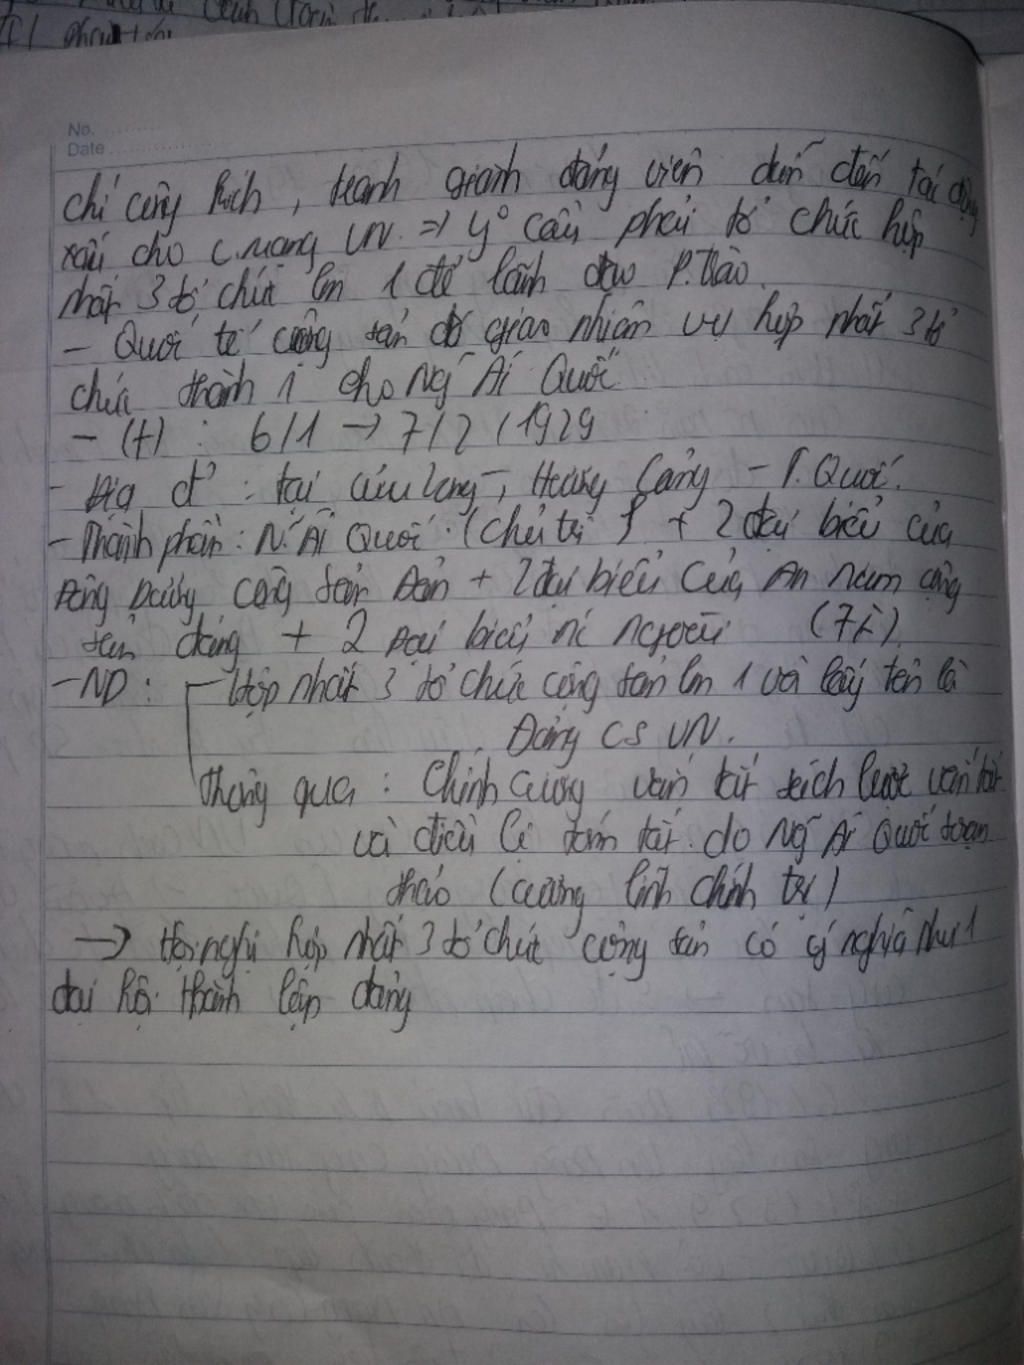 No.
Date
chỉ công kích, tranh giành đảng viên dẫn đến tác động
xấu cho c.mạng VN. => y° cầu phải tổ chức hợp
nhất 3 tổ chức lm 1 để lãnh đạo P.trào.
- Quốc tế cộng sản đã giao nhiệm vụ hợp nhất 3 tổ
chức thành 1 cho Ng Ái Quốc
- (t) : 6/1 → 7/2/1929
- Địa đ° : tại Cửu Long, Hương Cảng - T.Quốc.
- Thành phần: N.Ái Quốc (chủ trì) + 2 đại biểu của
Đông Dương cộng sản Đản + 2 đại biểu của An nam cộng
sản đảng + 2 đại biểu nc ngoài (7)
- ND : - Hợp nhất 3 tổ chức cộng sản lm 1 và lấy tên là
Đảng CS VN.
Thông qua : Chính cương vắn tắt sách lược vắn tắt
và điều lệ tóm tắt do Ng Ái Quốc soạn
thảo (cương lĩnh chính trị)
→ Hội nghị hợp nhất 3 tổ chức cộng sản có ý nghĩa như 1
đại hội thành lập đảng